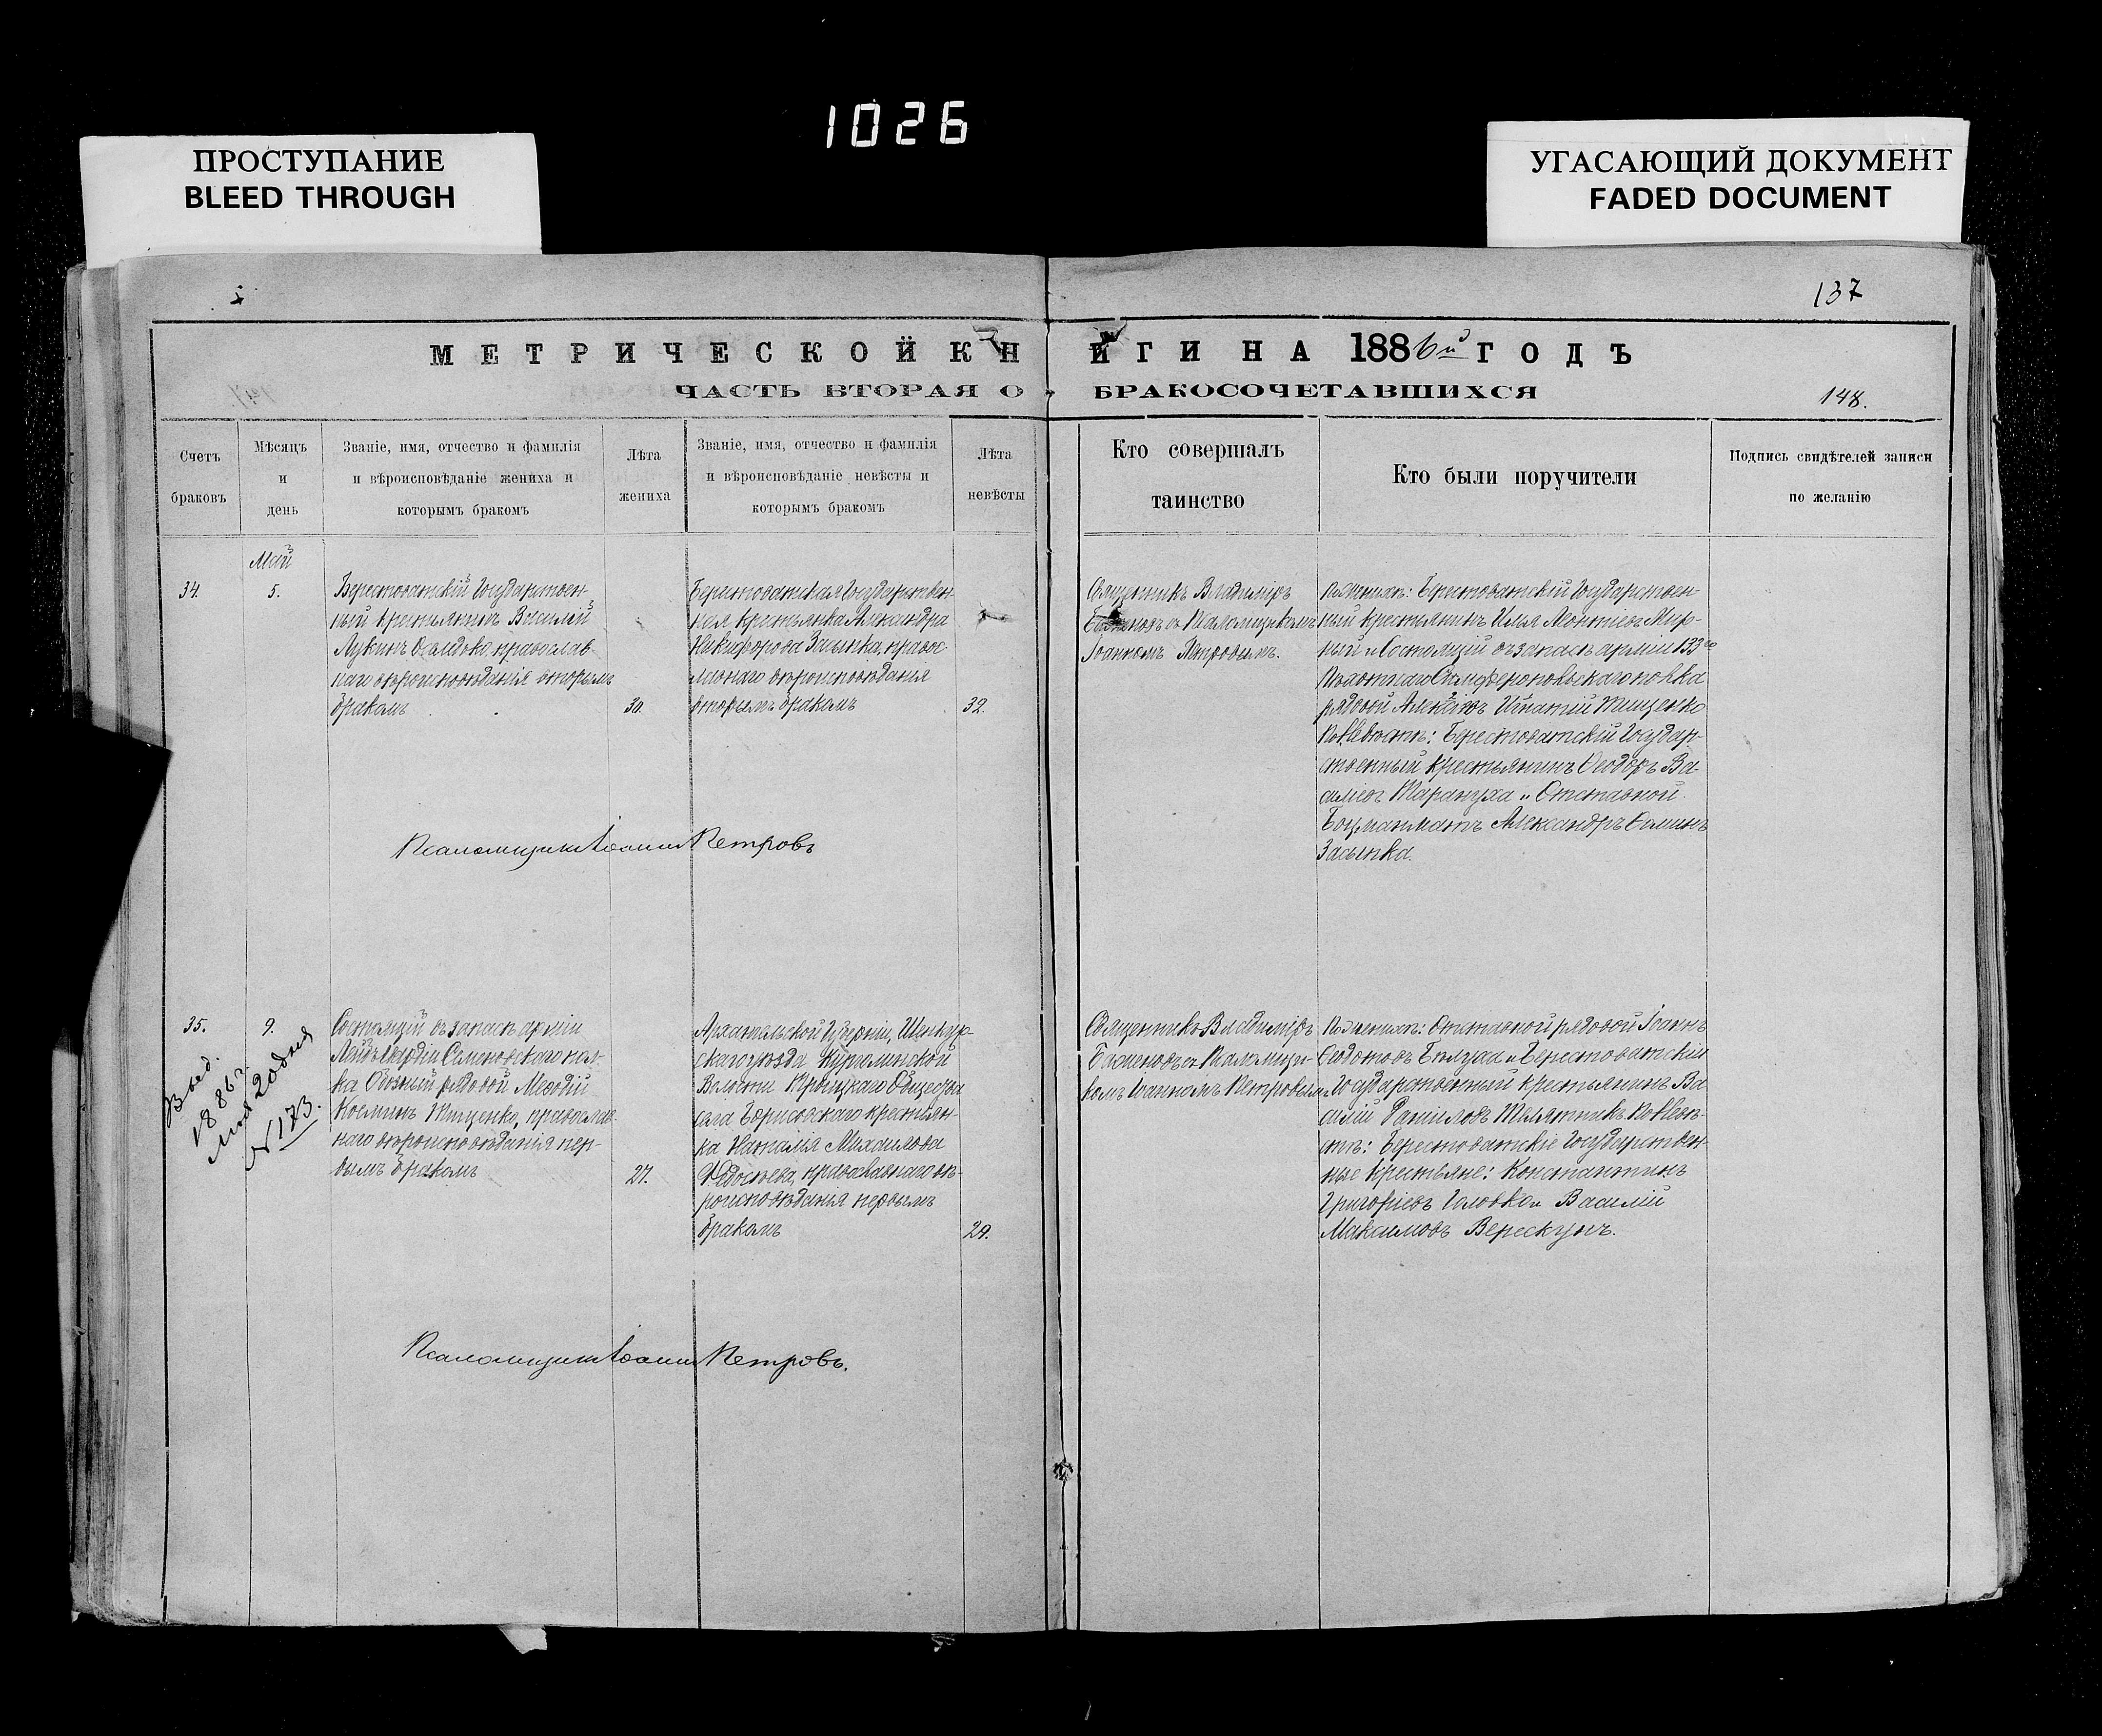 1026
ПРОСТУПАНИЕ
BLEED THROUGH
УГАСАЮЩИЙ ДОКУМЕНТ
FADED DOCUMENT
137
МЕТРИЧЕСКОЙ КНИГИ НА 1886й ГОДЪ
ЧАСТЬ ВТОРАЯ О БРАКОСОЧЕТАВШИХСЯ
148.
Счетъ
браковъ
Мѣсяцъ
и
день
Званіе, имя, отчество и фамилія
и вѣроисповѣданіе жениха и
которымъ бракомъ
Лѣта
жениха
Званіе, имя, отчество и фамилія
и вѣроисповѣданіе невѣсты и
которымъ бракомъ
Лѣта
невѣсты
Кто совершалъ
таинство
Кто были поручители
Подпись свидѣтелей записи
по желанію
Май
34.
5.
Берестоватскій Государствен-
ный крестьянинъ Василій
Лукинъ православ-
наго вѣроисповѣданія вторымъ
бракомъ
30.
Берестоватская Государствен-
ная крестьянка Александра
Никифорова Засынка, правос-
лавнаго вѣроисповѣданія
вторымъ бракомъ
32.
Священникъ Владиміръ
съ Псаломщикомъ
Іоанномъ Петровымъ.
По женихѣ: Берестоватскій Государствен-
ный крестьянинъ Илья Леонтіевъ Мир-
ный и Состоящій въ запасѣ арміи 133го
Пѣхотнаго Симферопольскаго полка
рядовой Игнатій Тищенко
По Невѣстѣ: Берестоватскій Государ-
ственный крестьянинъ Ѳеодоръ Ва-
силіевъ Тарануха и Отставной
Боцманматъ Александръ Ѳоминъ
Засынка.
Псаломщикъ Іоаннъ Петровъ
35.
9.
Выд.
1886 г.
Мая 20 дня
№ 173.
Состоящій въ запасѣ арміи
Лейбъ Гвардіи Семеновскаго пол-
ка Обозный рядовой Меѳодій
Косминъ Тищенко, православ-
наго вѣроисповѣданія пер-
вымъ бракомъ
27.
Архангельской Губерніи, Шенкур-
скаго уѣзда
Волости Общества
села Борисовскаго крестьян-
ка Наталья Михаилова
Ѳедосѣева, православнаго вѣ-
роисповѣданія первымъ
бракомъ
29.
Священникъ Владиміръ
съ Псаломщи-
комъ Іоанномъ Петровымъ
По женихѣ: Отставной рядовой Іоаннъ
Ѳедотовъ и Берестоватскій
Государственный крестьянинъ Ва-
силій Даніиловъ Телятникъ По Невѣс-
тѣ: Берестоватскіе Государствен-
ные крестьяне: Константинъ
Григоріевъ Головко и Василій
Максимовъ Верескунъ.
Псаломщикъ Іоаннъ Петровъ.